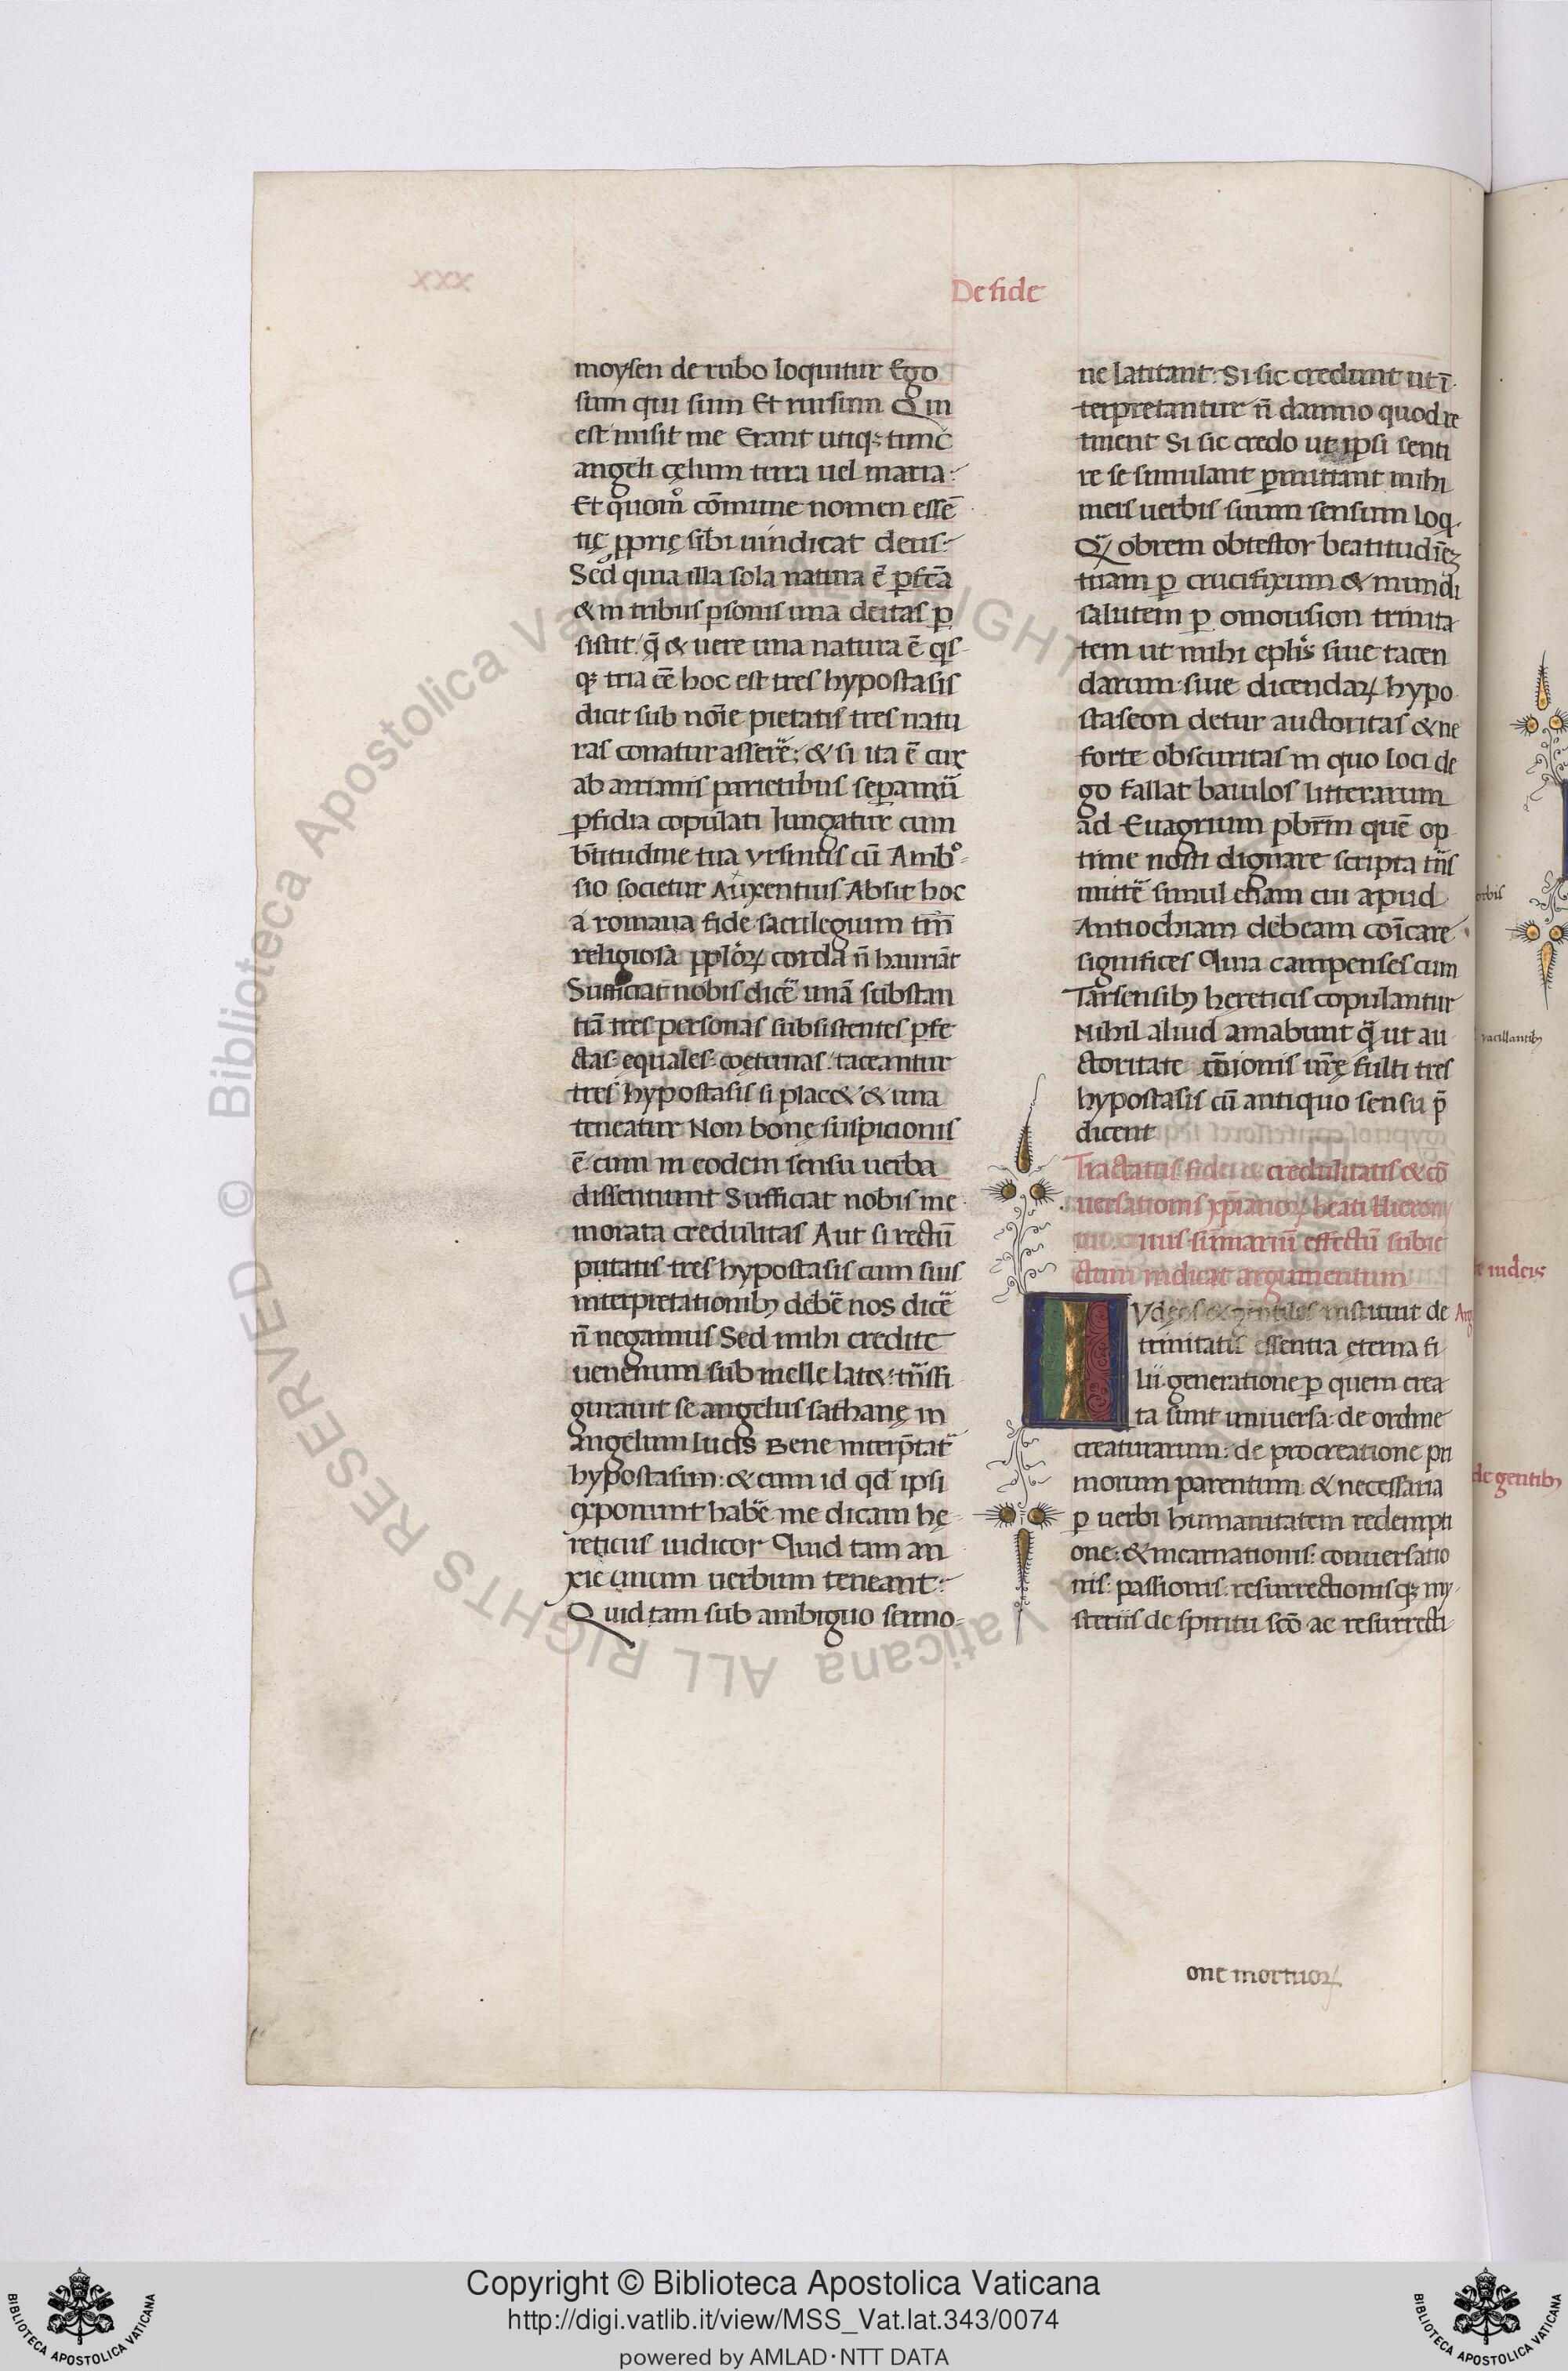 xxx
De fide
moysen de rubo loquitur Ego
sum qui sum Et rursum Qui
est misit me Erant utiqꝫ tunc
angeli cęlum terra uel maria
Et quom̊ cōmune nomen essē
tię ꝓprię sibi uindicat deus
Sed quia illa sola natura ē ꝑfcā
& in tribus ꝑsonis una deitas ꝑ
sistit q̄ & uere una natura ē qͥs
qꝫ tria eē hoc est tres hypostasis
dicit sub noīe pietatis tres natu
ras conatur asserē & si ita ē cur
ab arrianis parietibus seꝑamur
ꝑfidia copulati Iungatur cum
btītudine tua Vrsinus cū Ambͦ
sio societur Auxentius Absit hoc
a romana fide sacrilegium tm̄
religiosa pplōꝝ corda n̄ hauriāt
Sufficiat nobis dicē unā substan
tiā tres personas subsistentes ꝑfe
ctas equales coęternas taceantur
tres hypostasis si plac& & una
teneatur Non bonę suspicionis
ē cum in eodem sensu uerba
dissentiunt Sufficiat nobis me
morata credulitas Aut si rectū
putatis tres hypostasis cum suis
interpretationibꝫ debē nos dicē
n̄ negamus Sed mihi credite
uenenum sub melle lat& tn̄sfi
gurauit se angelus sathanę in
angelum lucis Bene interp̄tat
hypostasim & cum id qd̄ ipsi
exponunt habē me dicam hę
reticus iudicor Quid tam an
xie unum uerbum teneant
Quid tam sub ambiguo sermo
ne latitant Si sic credunt ut ī
terpretantur n̄ damno quod re
tinent Si sic credo ut ipsi senti
re se simulant ꝑmittant mihi
meis uerbis suum sensum loq
Qͣ obrem obtestor beatitudinē
tuam ꝑ crucifixum & mundi
salutem ꝑ omousion trinita
tem ut mihi eplis siue tacen
darum siue dicendaꝝ hypo
staseon detur auctoritas & ne
forte obscuritas in quo loci de
go fallat baiulos litterarum
ad Euagrium pbr̄m quē op
time nosti dignare scripta tn̄s
mittē simul etiam cui apud
Antiochiam debeam coīcare
significes Quia campenses cum
Tarsensibꝫ hereticis copulantur
Nihil aliud amabunt q̄ ut au
ctoritate cōīonis ur̄ę fulti tres
hypostasis cū antiquo sensu p̄
dicent
Tractatus fidei credulitatis & cō
uersationis xp̄ianoꝝ beati Hierony
mi cuius summariū effectū subie
ctum indicat argumentum
Vdęos & gentiles instituit de
trinitatis essentia ęterna fi
lii generatione ꝑ quem crea
ta sunt uniuersa de ordine
creaturarum de procreatione pri
morum parentum & necessaria
ꝑ uerbi humanitatem redempti
one & incarnationis conuersatio
nis passionis resurrectionisqꝫ my
steriis de spiritu scō ac resurrecti
one mortuoꝝ
uacillantibꝫ
iudeis
de gentibꝫ
© Biblioteca Apostolica Vaticana ALL RIGHTS RESERVED
Copyright © Biblioteca Apostolica Vaticana
http://digi.vatlib.it/view/MSS_Vat.lat.343/0074
powered by AMLAD·NTT DATA
BIBLIOTECA APOSTOLICA VATICANA
BIBLIOTECA APOSTOLICA VATICANA